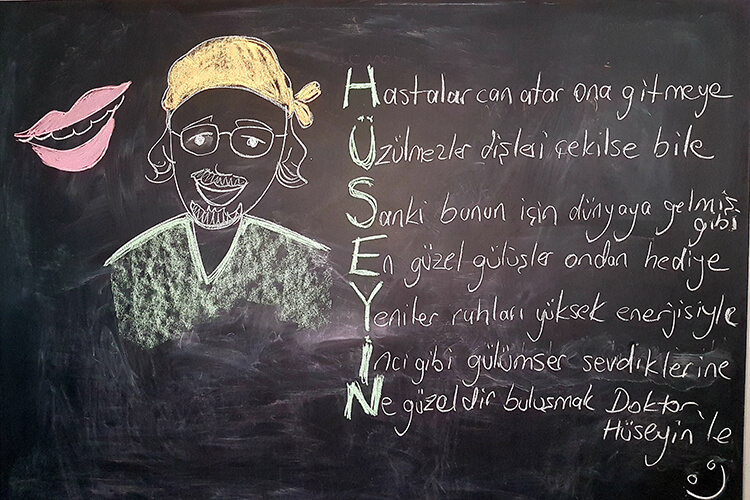 Hastalar can atar ona gitmeye
Üzülmezler dişleri çekilse bile
Sanki bunun için dünyaya gelmiş
gibi
En güzel gülüşler ondan hediye
Yeniler ruhları yüksek enerjisiyle
İnci gibi gülümser sevdiklerine
Ne güzeldir buluşmak Doktor
Hüseyin'le